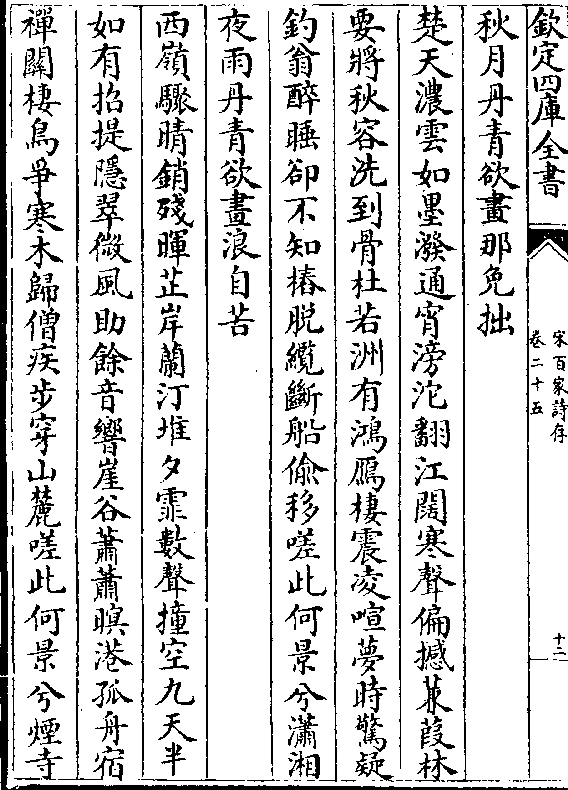 欽定四庫全書
宋百家詩存
卷二十五
十二
秋月丹青欲畫那免拙
楚天濃雲如墨潑通宵滂沱翻江闊寒聲偏撼蒹葭林
要將秋容洗到骨杜若洲有鴻鴈棲震凌喧夢時驚疑
釣翁醉睡卻不知樁脱纜斷船偷移嗟此何景兮瀟湘
夜雨丹青欲畫浪自苦
西嶺驟晴銷殘暉芷岸蘭汀堆夕霏數聲撞空九天半
如有招提隱翠微風助餘音響崖谷蕭蕭暝港孤舟宿
禪關棲鳥爭寒木歸僧疾步穿山麓嗟此何景兮煙寺